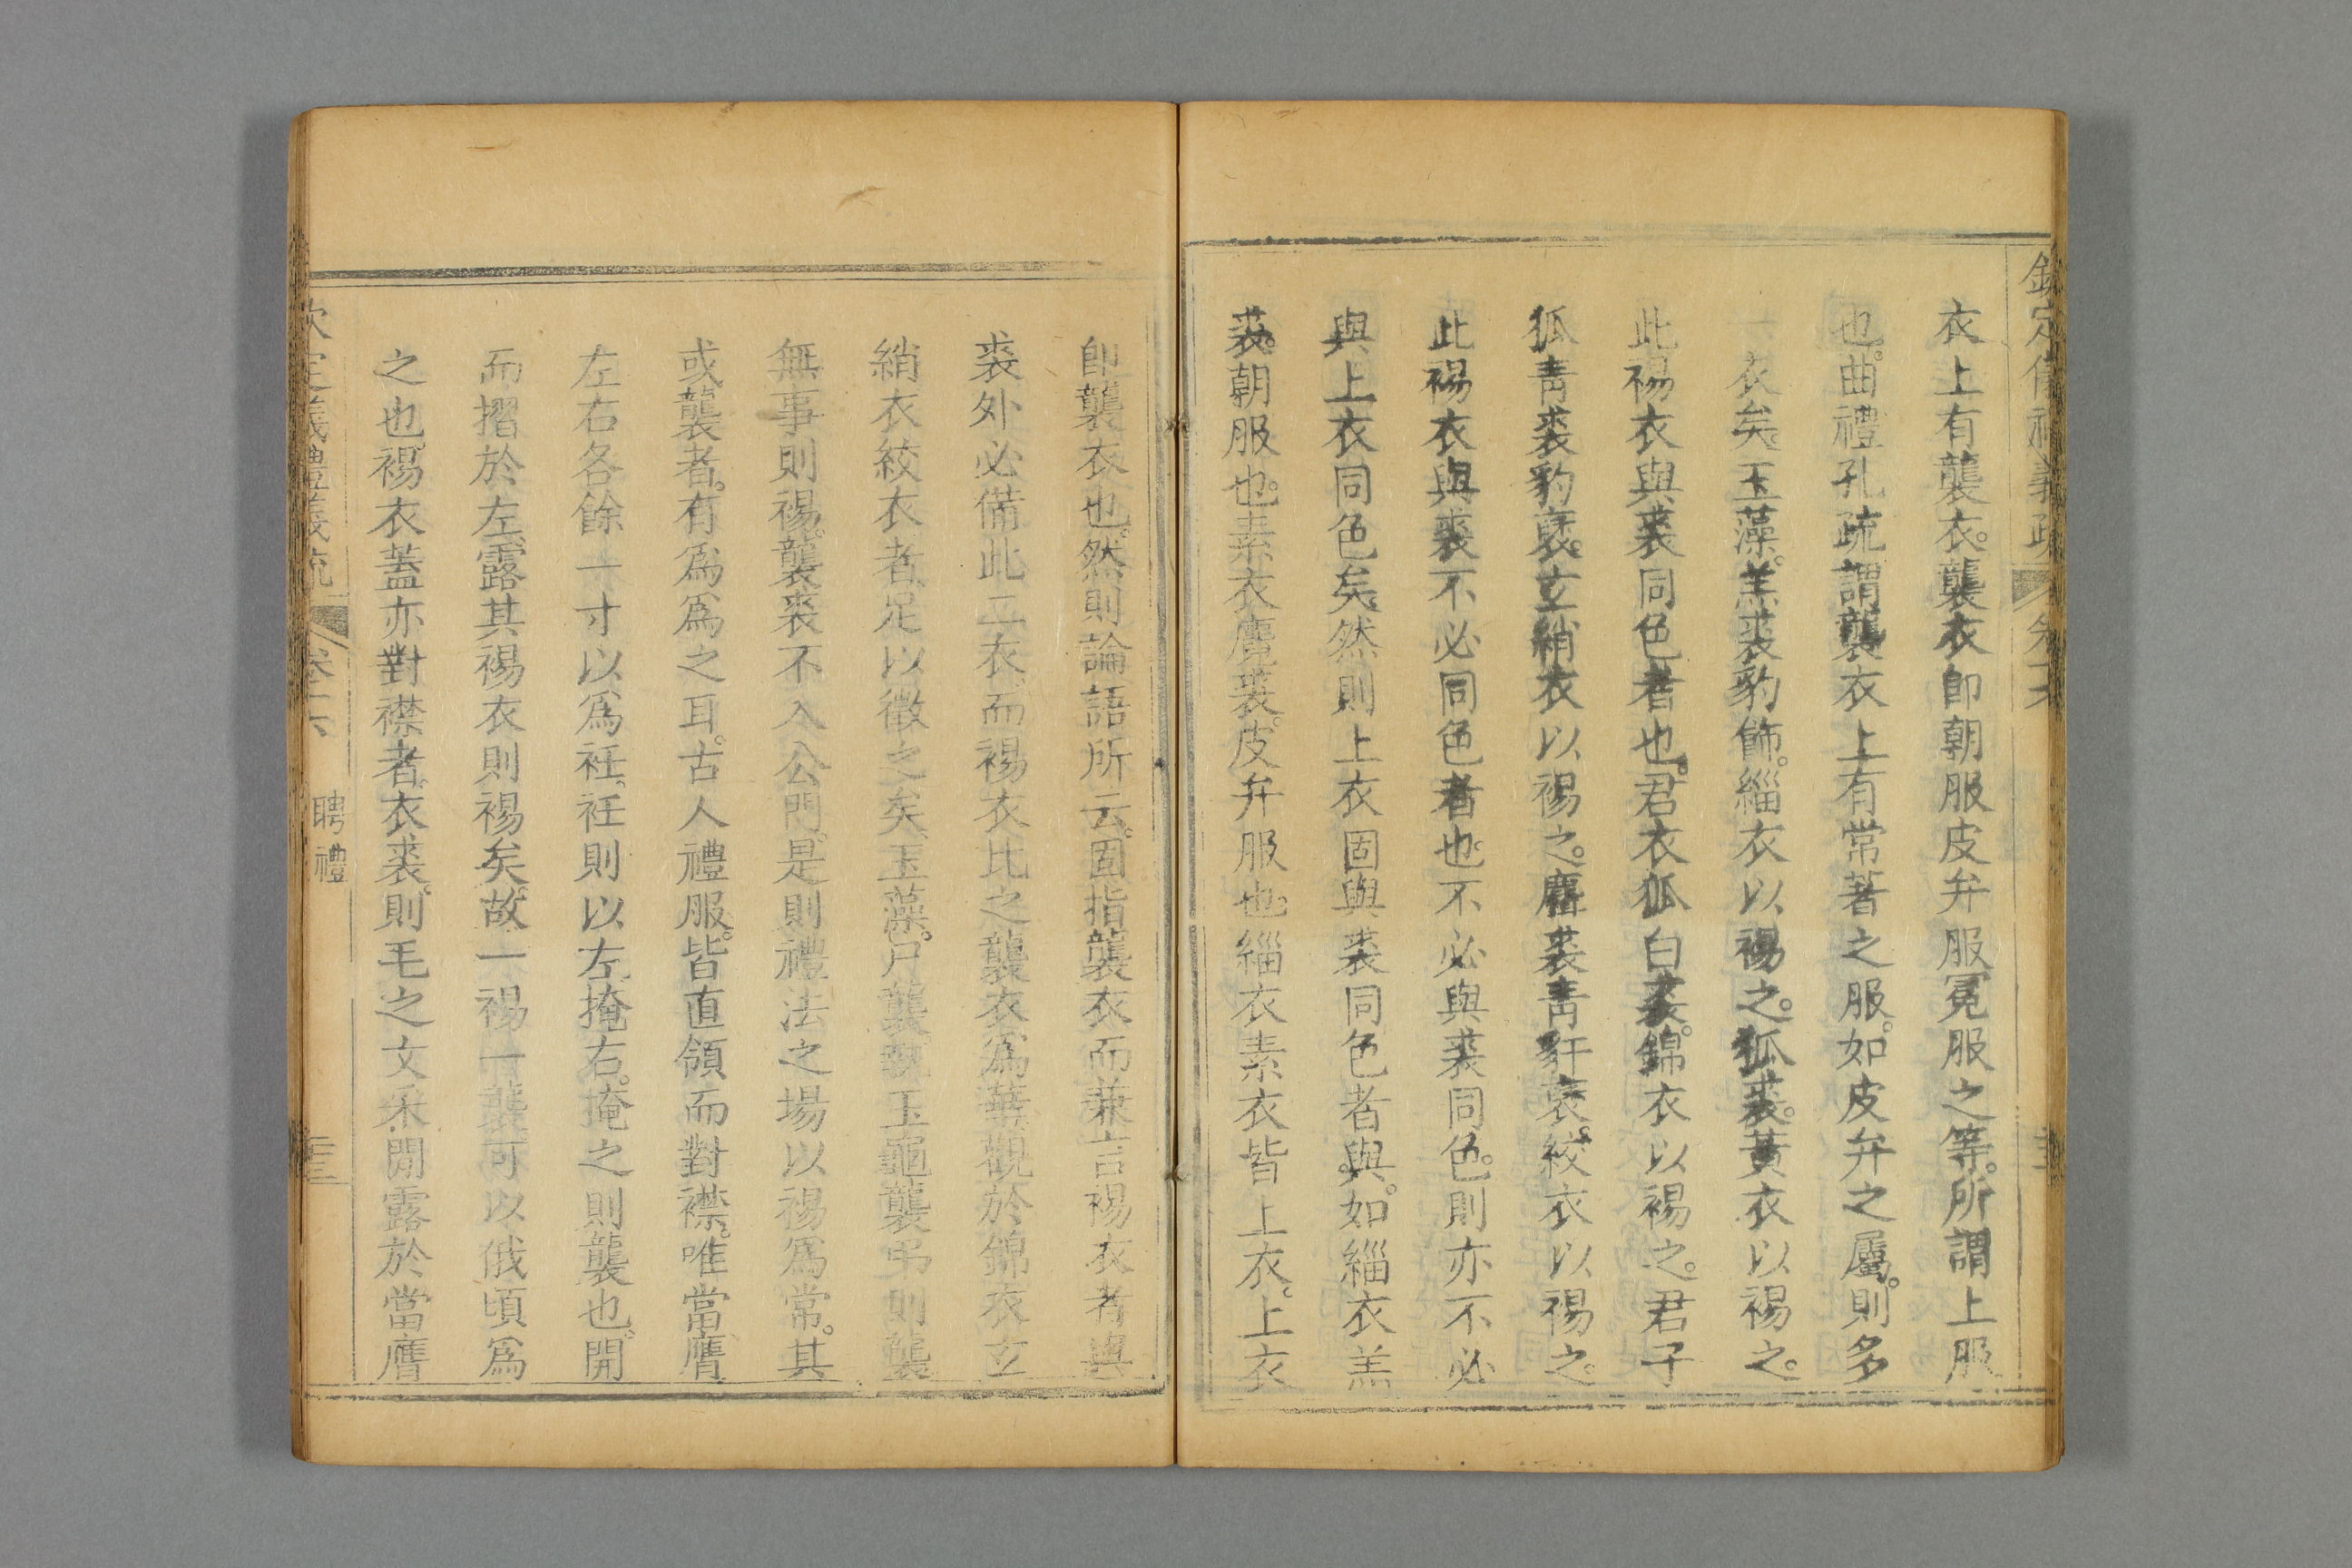 欽定儀禮義疏 卷十六
衣上有襲衣。襲衣卽朝服皮弁服冕服之等。所謂上服
也。曲禮孔疏謂襲衣上有常著之服。如皮弁之屬。則多
一衣矣。玉藻。羔裘豹飾。緇衣以裼之。狐裘。黃衣以裼之。
此裼衣與裘同色者也。君衣狐白裘。錦衣以裼之。君子
狐靑裘豹褎。玄綃衣以裼之。麛裘靑豻褎。絞衣以裼之。
此裼衣與裘不必同色者也。不必與裘同色。則亦不必
與上衣同色矣。然則上衣固與裘同色者與。如緇衣羔
裘。朝服也。素衣麑裘。皮弁服也。緇衣素衣皆上衣。上衣
卽襲衣也。然則論語所云。固指襲衣而兼言裼衣者與
裘外必備此二衣。而裼衣比之襲衣爲華。觀於錦衣玄
綃衣絞衣者。足以徵之矣。玉藻。尸襲。執玉龜襲。弔則襲
無事則裼。襲裘不入公門。是則禮法之場以裼爲常。其
或襲者。有爲爲之耳。古人禮服。皆直領而對襟。唯當膺
左右各餘一寸以爲衽。衽則以左掩右。掩之則襲也。開
而摺於左。露其裼衣則裼矣。故一裼一襲可以俄頃爲
之也。裼衣蓋亦對襟者。衣裘。則毛之文采閒露於當膺
欽定儀禮義疏 卷十六 聘禮 三